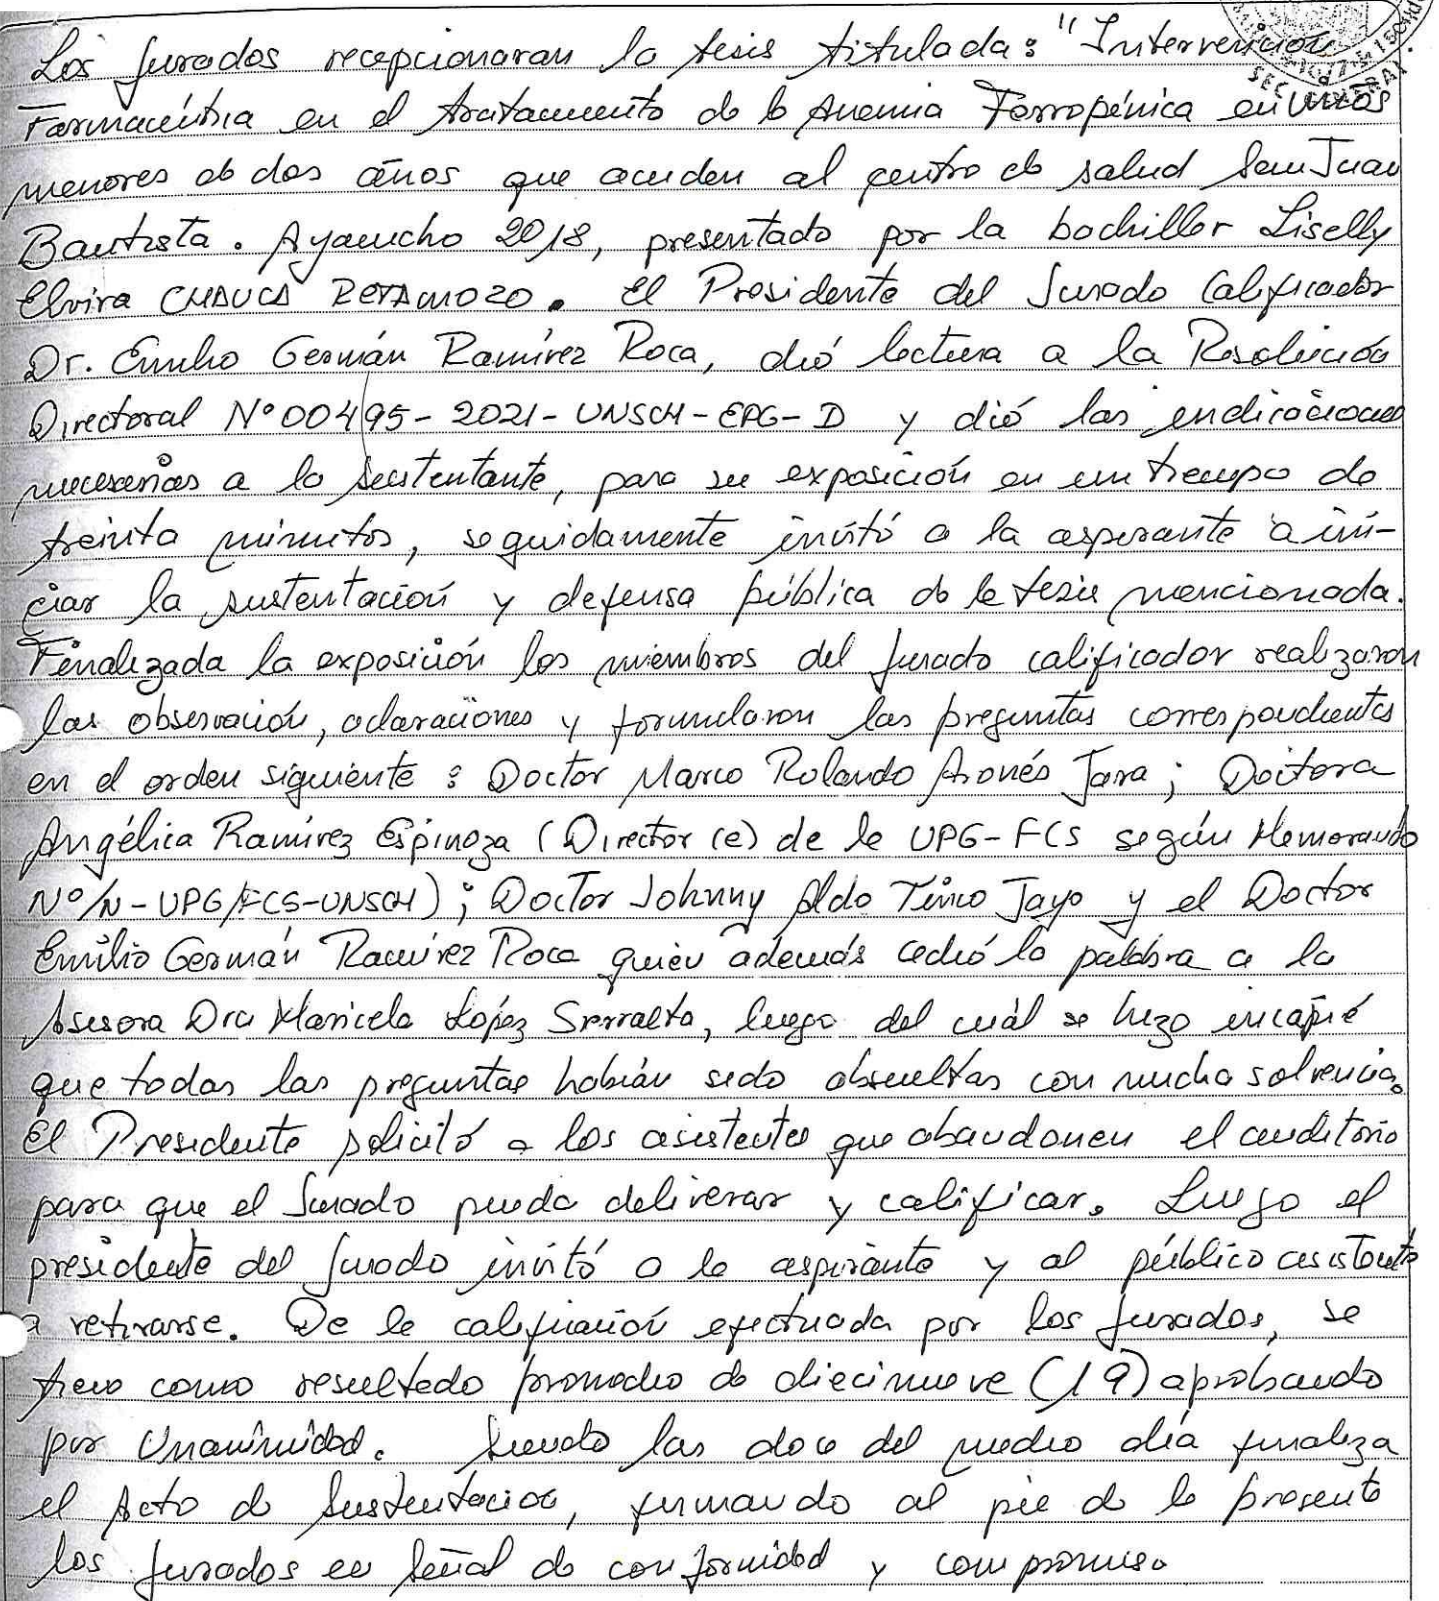 Los jurados recepcionaron la tesis titulada: "Intervención
Farmacéutica en el tratamiento de la Anemia Ferropénica en niños
menores de dos años que acuden al centro de salud San Juan
Bautista. Ayacucho 2018, presentado por la bachiller Liselly
Elvira CHAUCA RETAMOZO. El Presidente del Jurado Calificador
Dr. Emilio Germán Ramírez Roca, dió lectura a la Resolución
Directoral N° 00495-2021-UNSCH-EPG-D y dió las indicaciones
necesarias a la sustentante, para su exposición en un tiempo de
treinta minutos, seguidamente invitó a la aspirante a ini-
ciar la sustentación y defensa pública de la tesis mencionada.
Finalizada la exposición los miembros del jurado calificador realizaron
las observación, aclaraciones y formularon las preguntas correspondientes
en el orden siguiente: Doctor Marco Rolando Aronés Jara; Doctora
Angélica Ramírez Espinoza (Director (e) de la UPG-FCS según Memorando
N° S/N-UPG/FCS-UNSCH); Doctor Johnny Aldo Tinco Jayo y el Doctor
Emilio Germán Ramírez Roca quien además cedió la palabra a la
Asesora Dra Maricela López Sierralta, luego del cuál se hizo incapié
que todas las preguntas habían sido absueltas con mucha solvencia.
El Presidente solicitó a los asistentes que abandonen el auditorio
para que el Jurado pueda deliverar y calificar. Luego el
presidente del jurado invitó a la aspirante y al público asistente
a retirarse. De la calificación efectuada por los jurados, se
tuvo como resultado promedio de diecinueve (19) aprobando
por Unanimidad. Siendo las doce del medio día finaliza
el Acto de Sustentación, firmando al pie de la presente
los jurados en señal de conformidad y compromiso